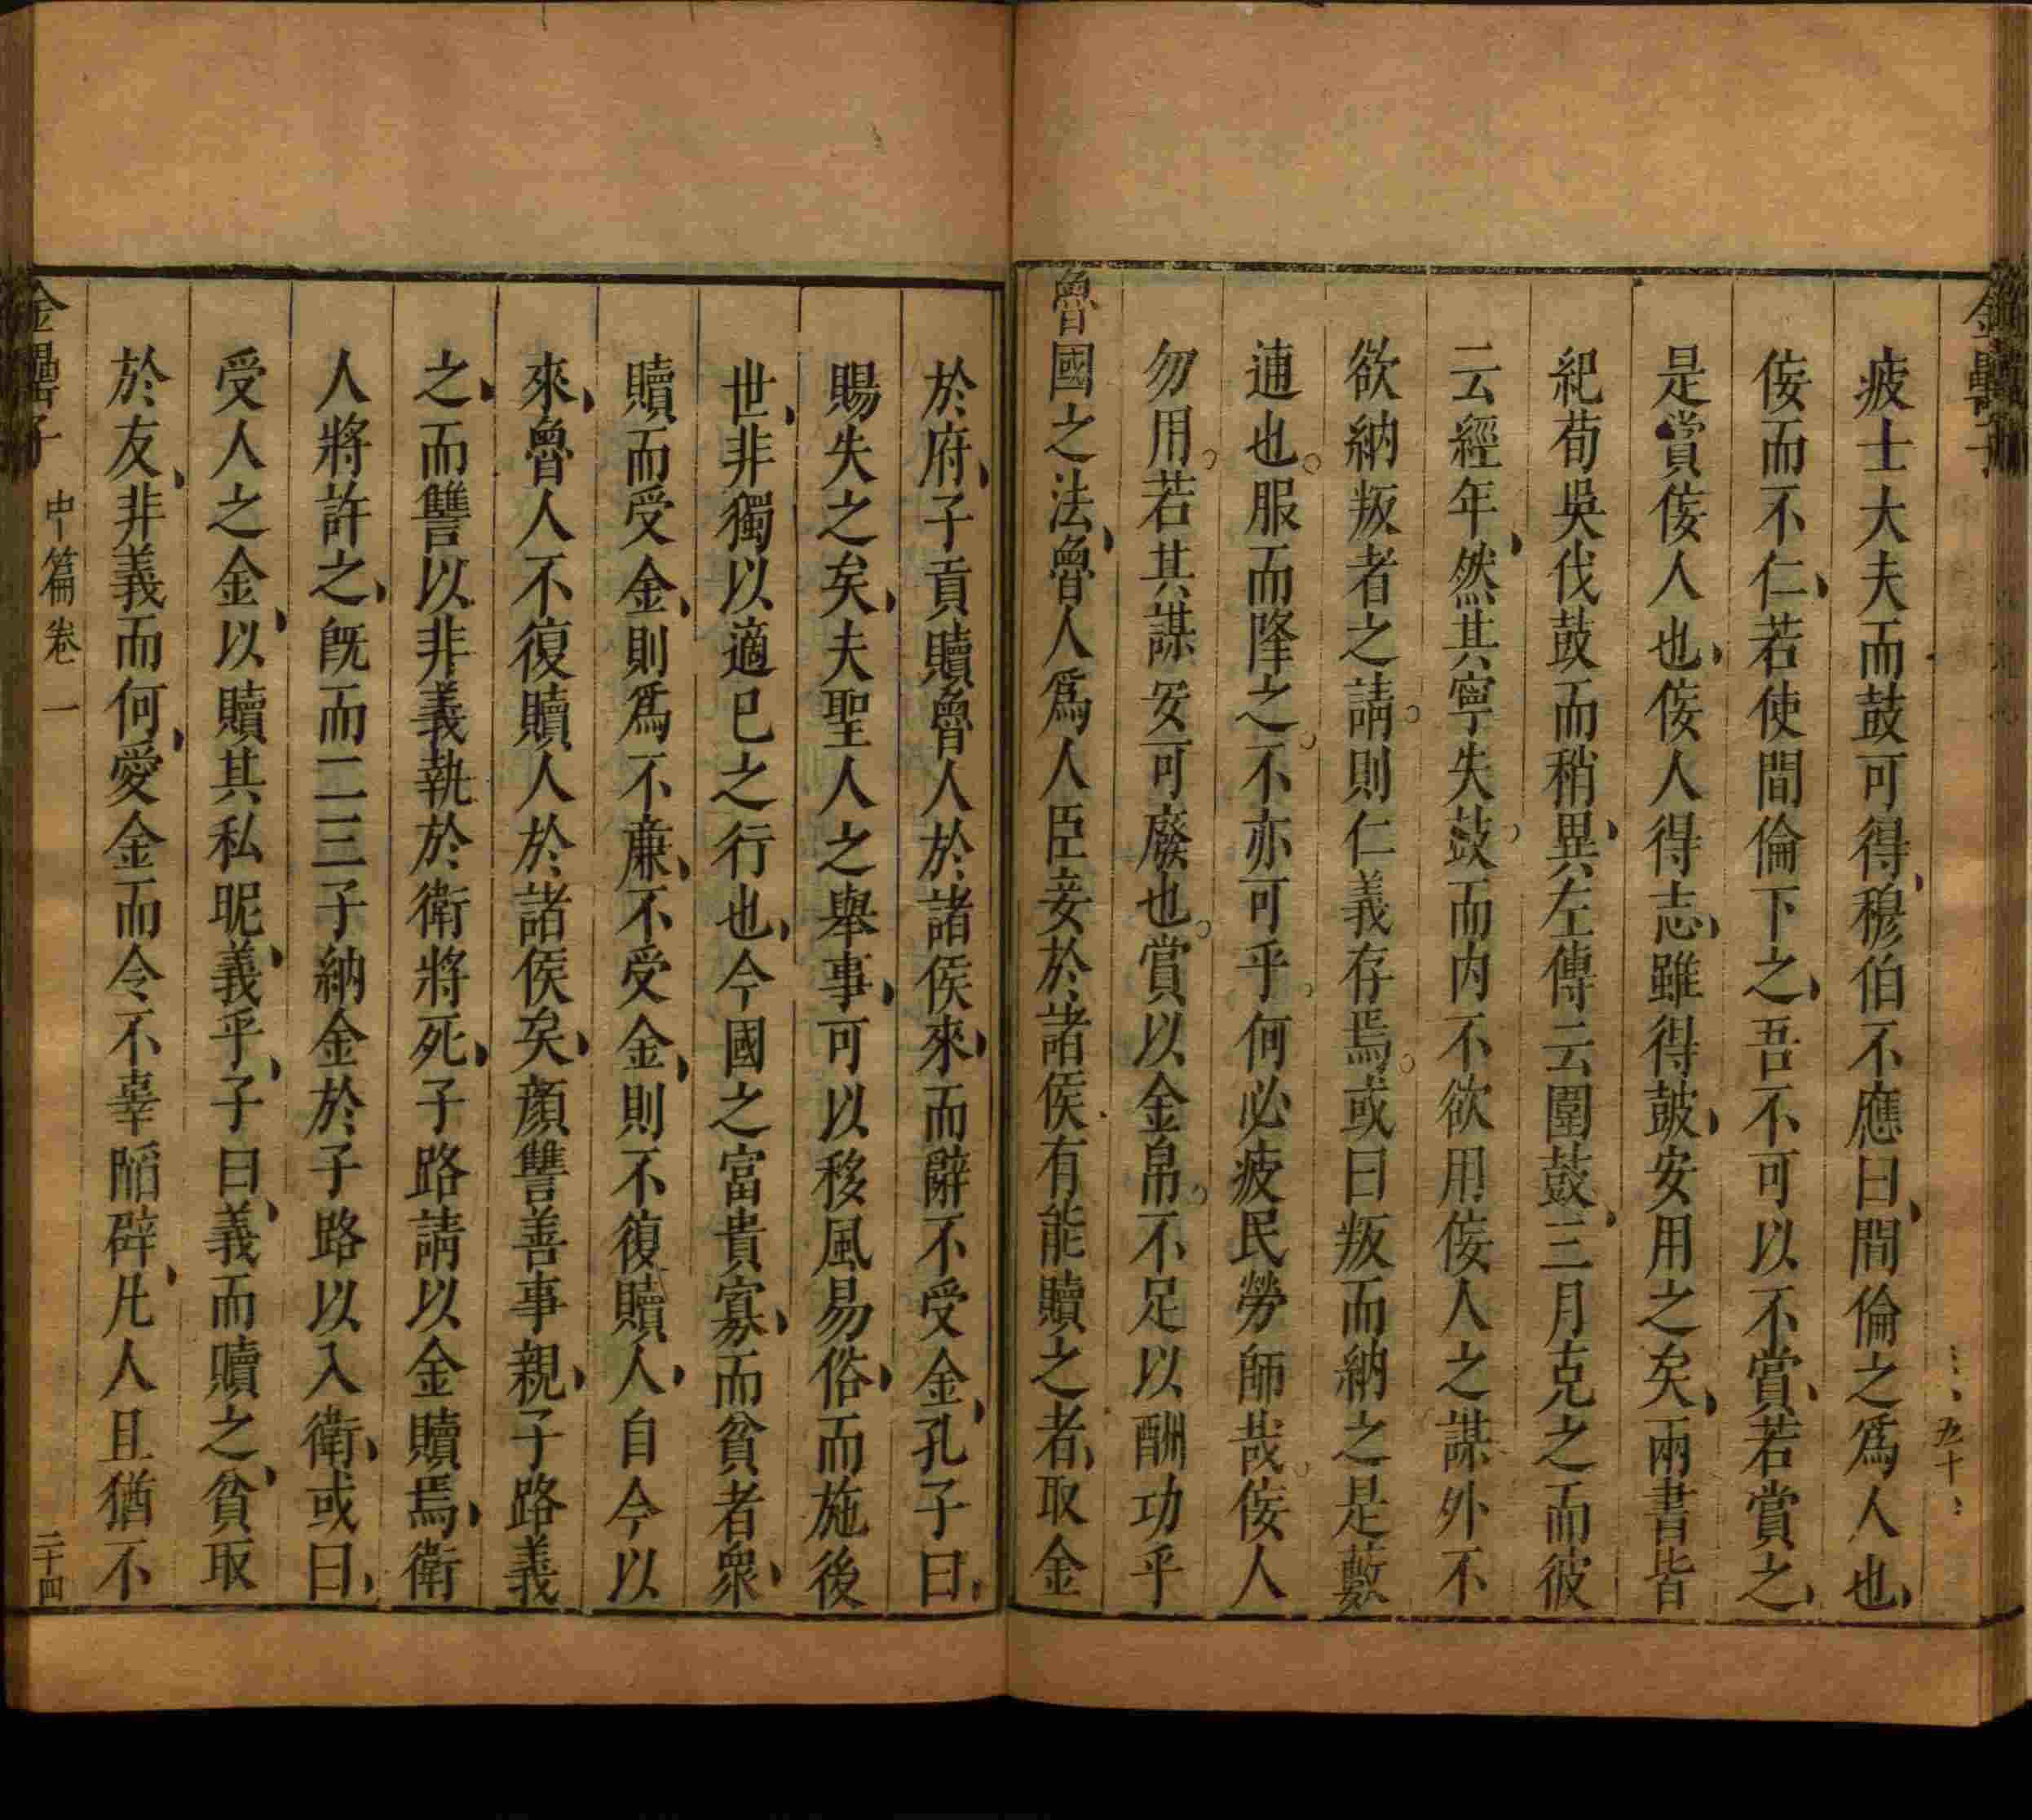 疲士大夫而鼓可得穆伯不應曰間倫之爲人也
佞而不仁若使間倫下之吾不可以不賞若賞之
是賞佞人也佞人得志雖得鼓安用之矣兩書皆
紀荀吳伐鼓而稍異左傳云圍鼓三月克之而彼
云經年然其寧失鼓而内不欲用佞人之謀外不
欲納叛者之請則仁義存焉或曰叛而納之是藪
逋也服而降之不亦可乎何必疲民勞師哉佞人
勿用若其謀安可廢也賞以金帛不足以酬功乎
魯國之法魯人爲人臣妾於諸侯有能贖之者取金
於府子貢贖魯人於諸侯來而辭不受金孔子曰
賜失之矣夫聖人之舉事可以移風易俗而施後
世非獨以適已之行也今國之富貴寡而貧者衆
贖而受金則爲不廉不受金則不復贖人自今以
來魯人不復贖人於諸侯矣顔讐善事親子路義
之而讐以非義執於衛將死子路請以金贖焉衛
人將許之旣而二三子納金於子路以入衛或曰
受人之金以贖其私昵義乎子曰義而贖之貧取
於友非義而何愛金而令不辜陷辟凡人且猶不
金罍子 中篇卷一 二十四